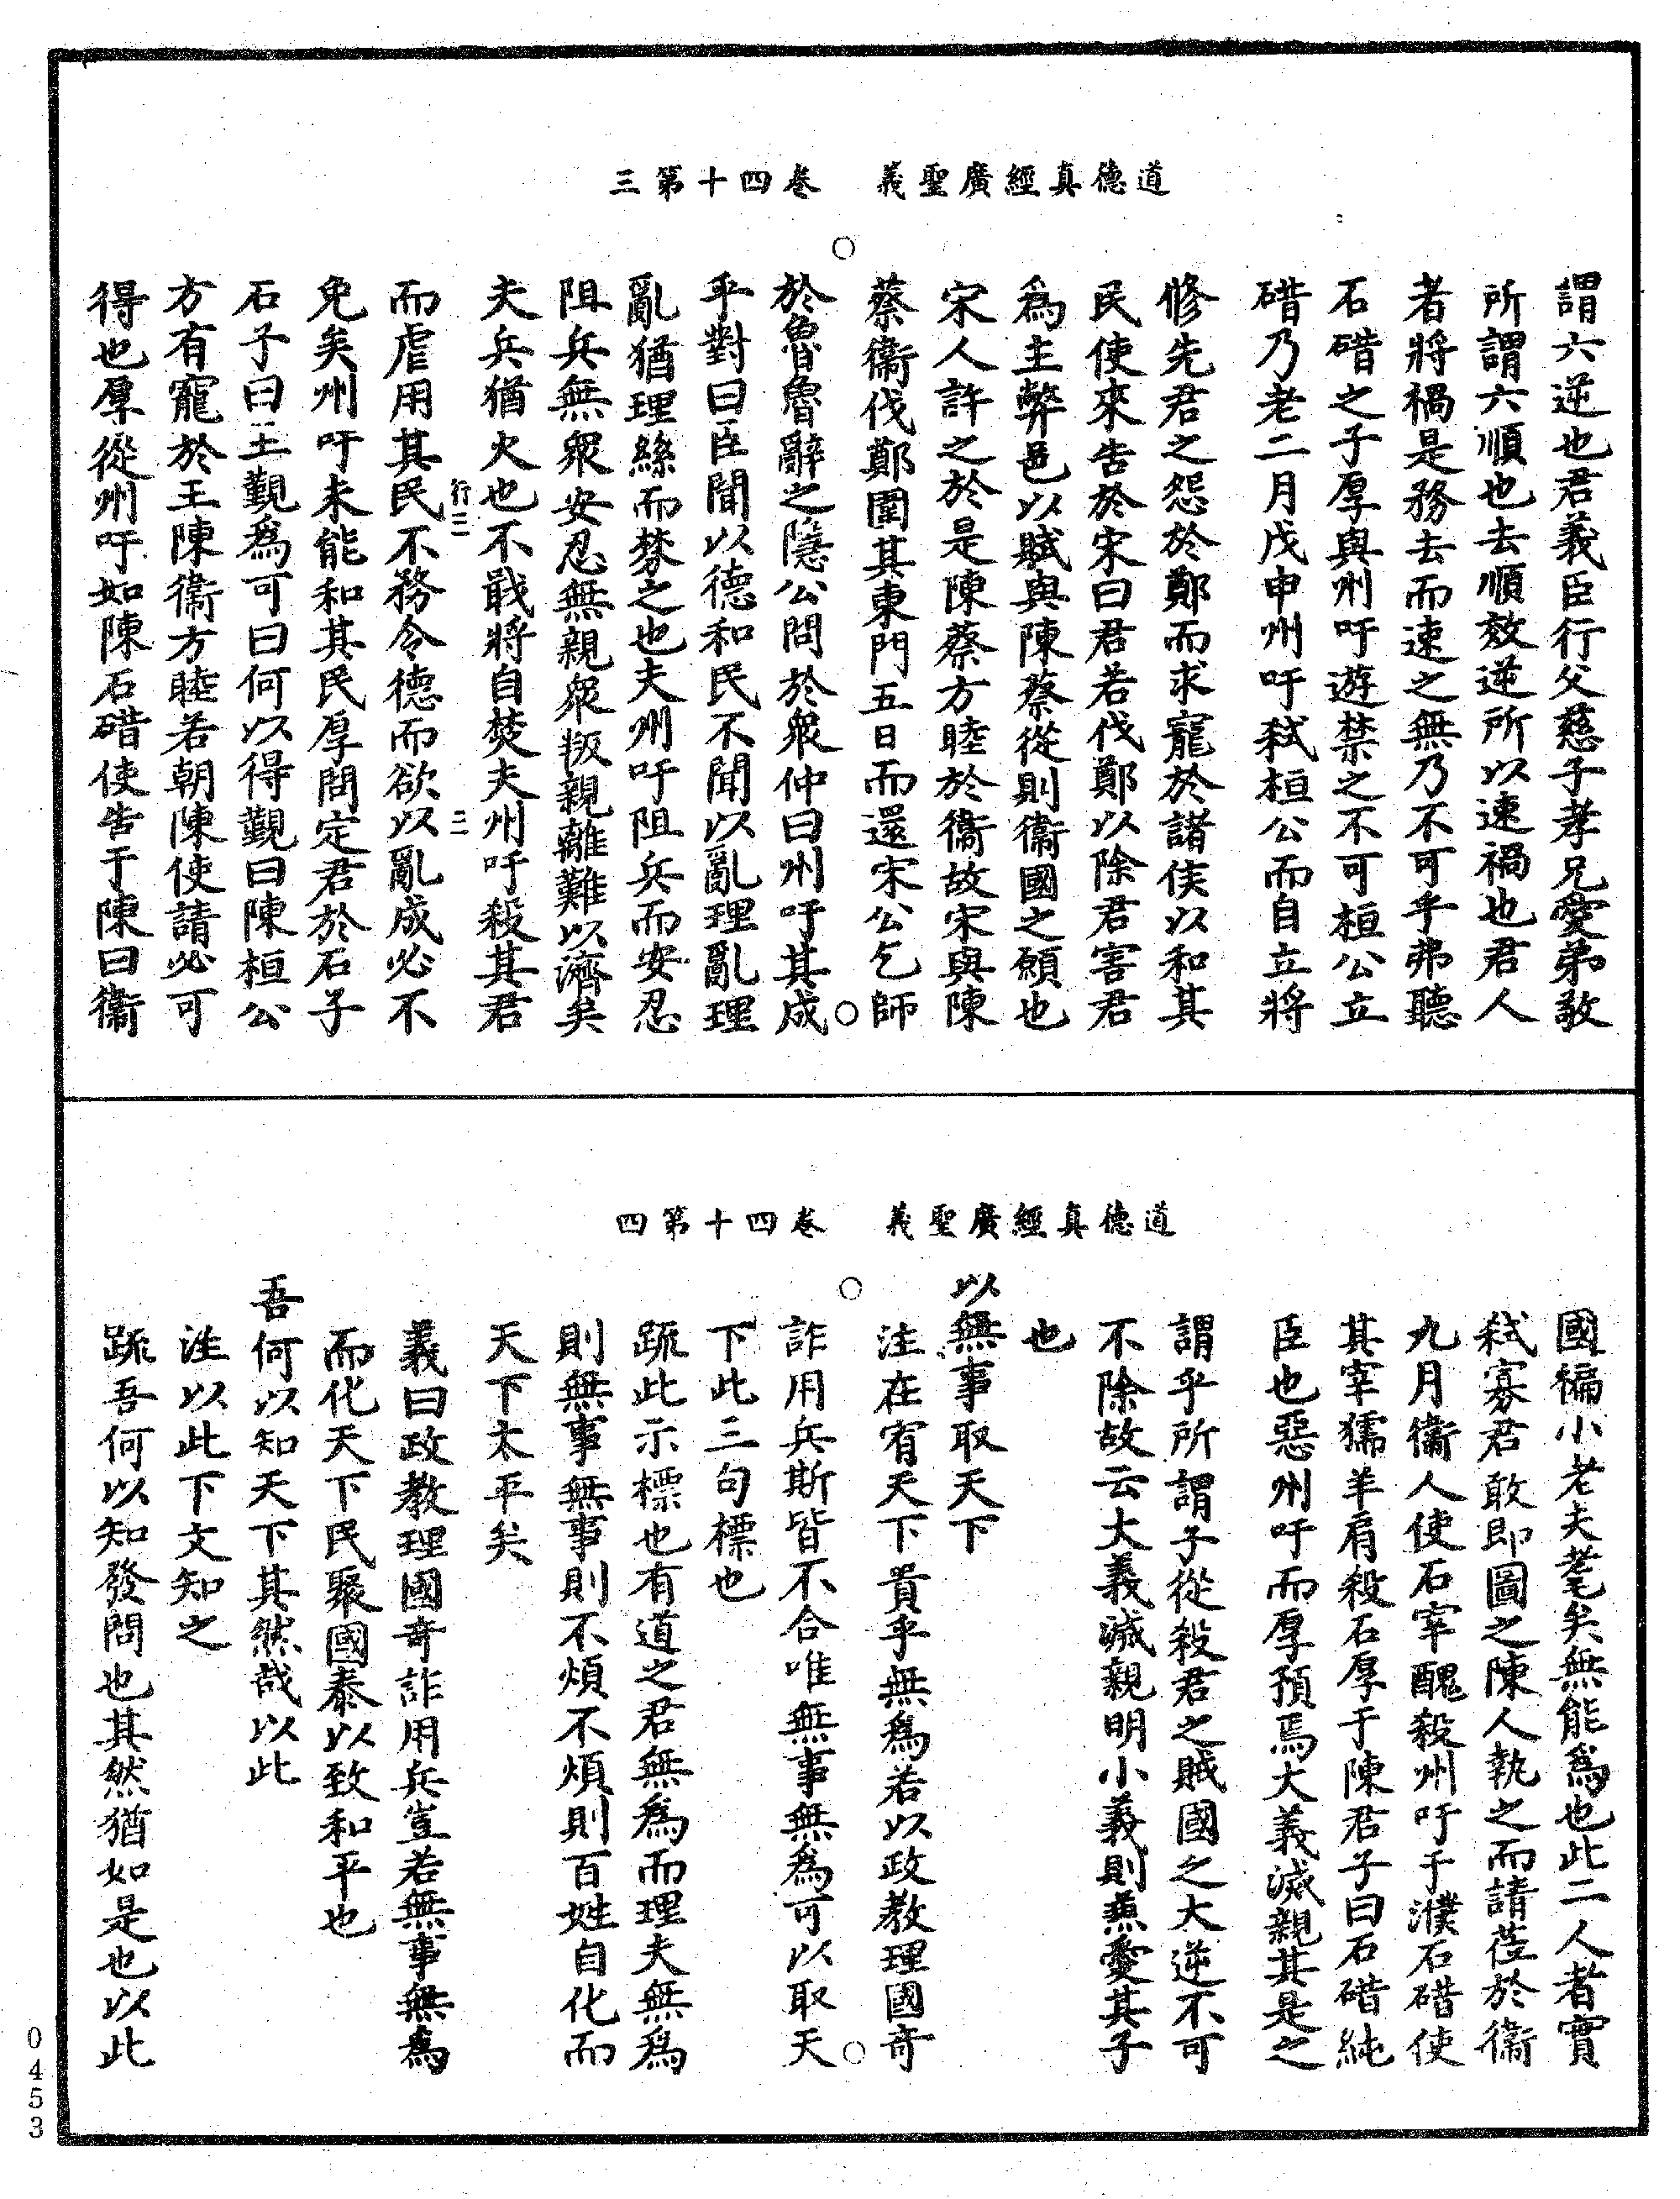 道德真經廣聖義　卷四十第三
謂六逆也君義臣行父慈子孝兄愛弟敬
所謂六順也去順效逆所以速禍也君人
者將禍是務去而速之無乃不可乎弗聽
石碏之子厚與州吁遊禁之不可桓公立
碏乃老二月戊申州吁弒桓公而自立將
修先君之怨於鄭而求寵於諸侯以和其
民使來告於宋曰君若伐鄭以除君害君
為主弊邑以賦與陳蔡從則衞國之願也
宋人許之於是陳蔡方睦於衞故宋與陳
蔡衞伐鄭圍其東門五日而還宋公乞師
於魯魯辭之隱公問於衆仲曰州吁其成
乎對曰臣聞以德和民不聞以亂理亂理
亂猶理絲而棼之也夫州吁阻兵而安忍
阻兵無衆安忍無親衆叛親離難以濟矣
夫兵猶火也不戢將自焚夫州吁殺其君
行三　二
而虐用其民不務令德而欲以亂成必不
免矣州吁未能和其民厚問定君於石子
石子曰王覲為可曰何以得覲曰陳桓公
方有寵於王陳衞方睦若朝陳使請必可
得也厚從州吁如陳石碏使告于陳曰衞
道德真經廣聖義　卷四十第四
國褊小老夫耄矣無能為也此二人者實
弒寡君敢即圖之陳人執之而請莅於衞
九月衞人使右宰醜殺州吁于濮石碏使
其宰獳羊肩殺石厚于陳君子曰石碏純
臣也惡州吁而厚預焉大義滅親其是之
謂乎所謂子從殺君之賊國之大逆不可
不除故云大義滅親明小義則兼愛其子
也
以無事取天下
注在宥天下貴乎無為若以政教理國奇
詐用兵斯皆不合唯無事無為可以取天
下此三句標也
疏此示標也有道之君無為而理夫無為
則無事無事則不煩不煩則百姓自化而
天下太平矣
義曰政教理國奇詐用兵豈若無事無為
而化天下民聚國泰以致和平也
吾何以知天下其然哉以此
注以此下文知之
疏吾何以知發問也其然猶如是也以此
0453